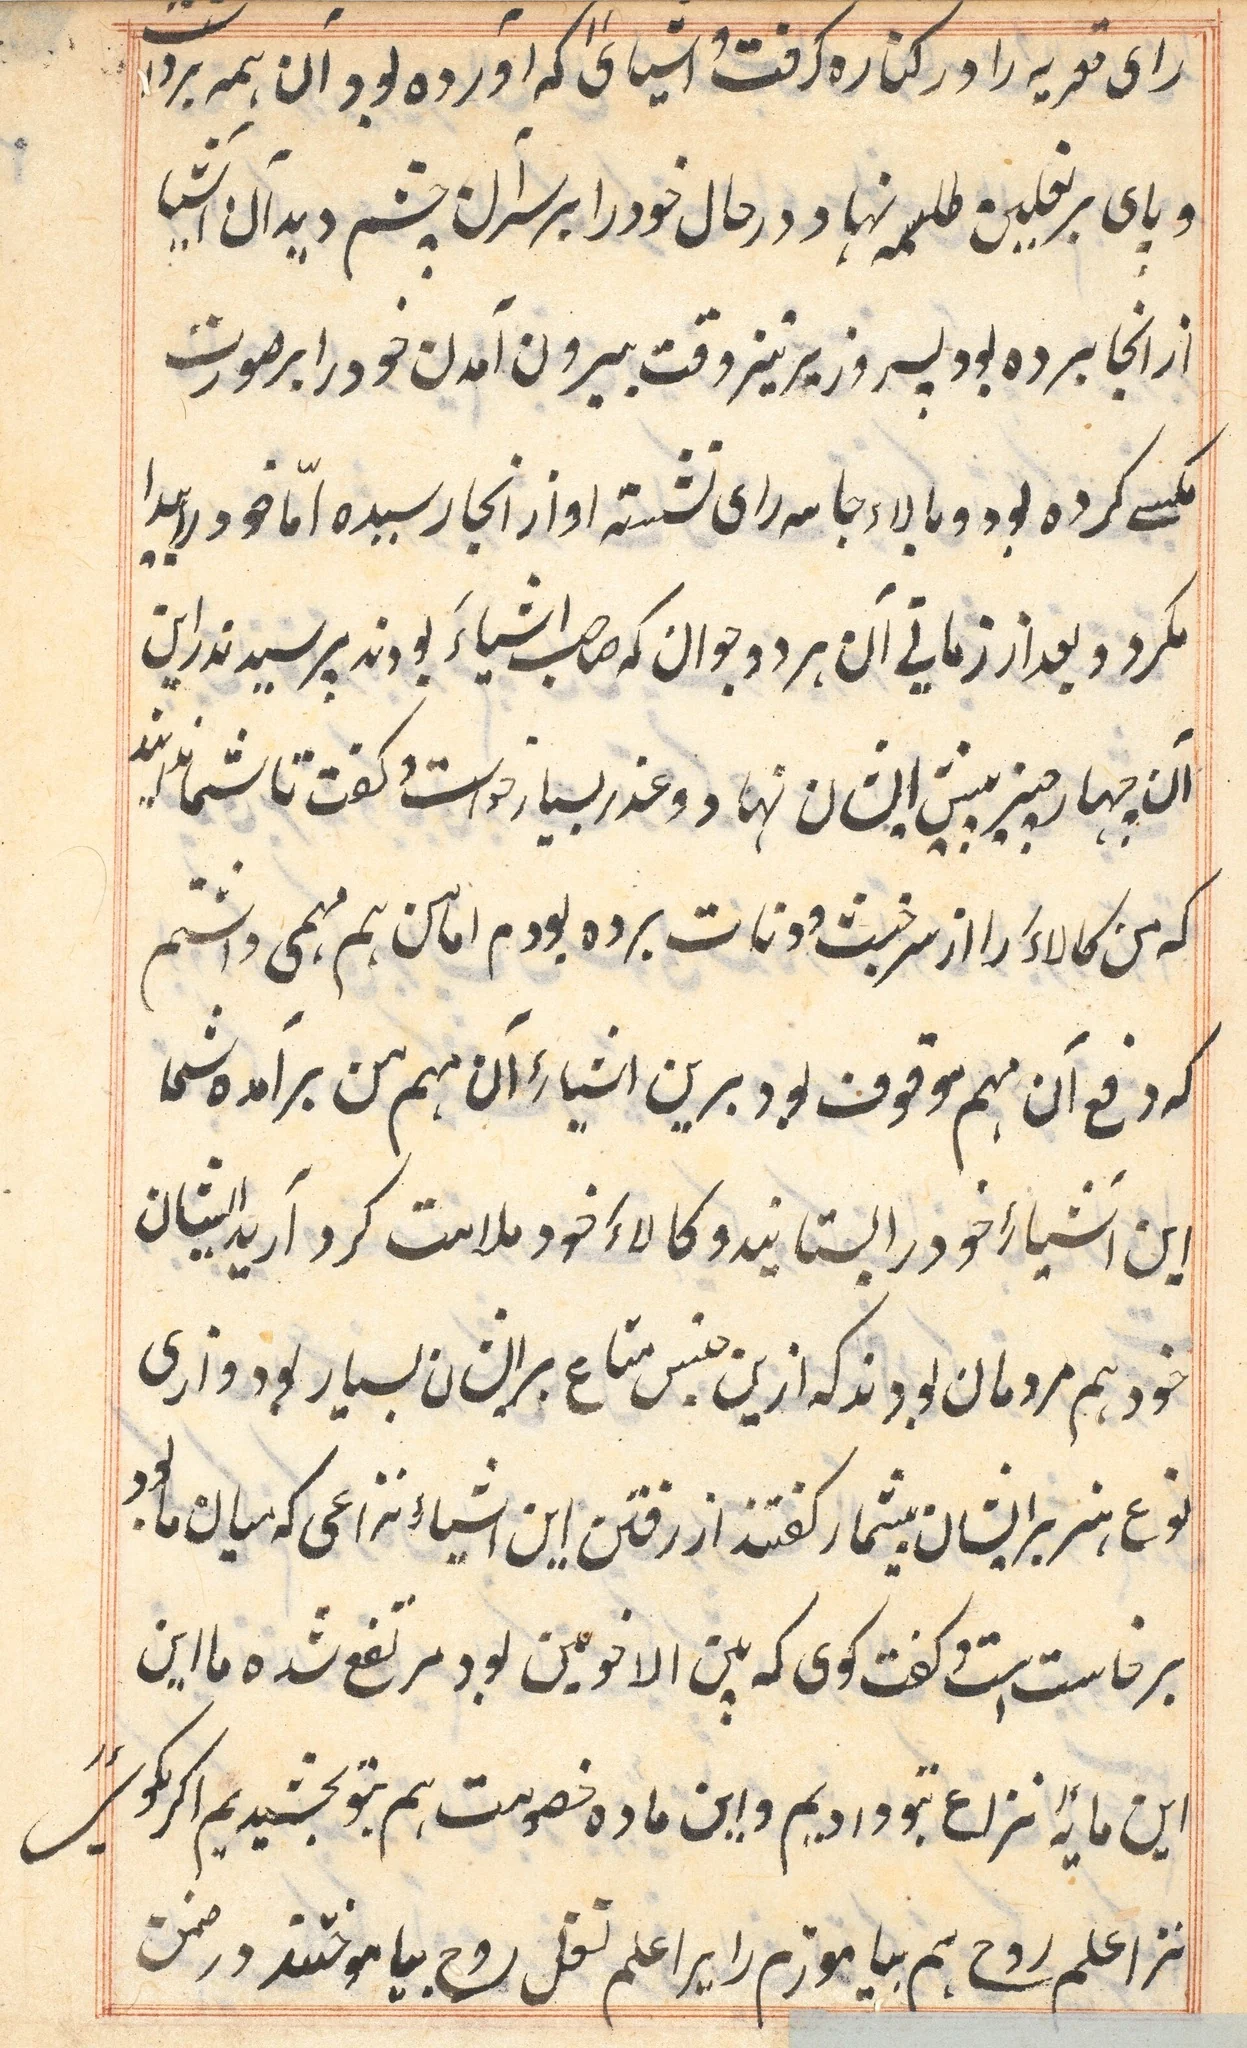 رای قریه را در کناره گرفت و اشیائی که آورده بود آن همه برداشت
و پای بر نعلین طلسم نهاد و در حال خود را بر سر آن چشم دید آن اشیا
از انجا برده بود پسر وزیر نیز وقت بیرون آمدن خود را بر صورت
مکسے کرده بود و بالاء جامه رای نشسته او از انجا رسیده امّا خود را پیدا
نکرد و بعد از زمانی آن هر دو جوان که صاحب اشیاء بودند پرسیدند راین
آن چهار چیز پیش ایشان نهاد و عذر بسیار خواست و کفت تا شما ندانید
که من کالاء را از سر خبث و دنات برده بودم اما من هم مهمی داشتم
که دفع آن مهم موقوف بود برین اشیاء آن مهم من برآمده شما
این اشیاء خود را بستانید و کالاء خود ملامت کرد آرید ایشان
خود هم مردمان بودند که ازین جنس متاع بر ایشان بسیار بود و ازی
نوع هنر بر ایشان بیشمار کفتند از رفتن این اشیاء نزاعی که میان ما بود
برخاست است و کفت کوی که بین الاخوین بود مرتفع شده ما این
این مایهٔ نزاع بتو دادیم و این ماده خصومت هم بتو بخشیدیم اکر بکوئی
ترا علم روح هم بیاموزم رایرا علم نقل روح بیاموختند در ضمن